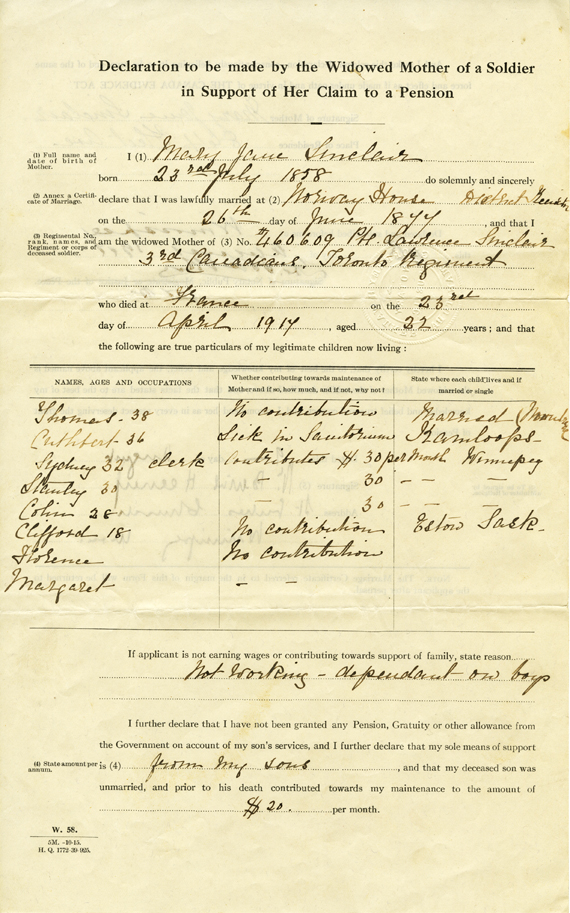 Declaration to be made by the Widowed Mother of a Soldier
in Support of Her Claim to a Pension
(1) Full name and date of birth of Mother.
I (1) Mary Jane Sinclair
born 23rd July 1858 do solemnly and sincerely
(2) Annex a Certificate of Marriage.
declare that I was lawfully married at (2) Norway House District
on the 26th day of June 1877, and that I
(3) Regimental No., rank, names, and Regiment or corps of deceased soldier.
am the widowed Mother of (3) No. #460609 Pte Lawrence Sinclair
3rd Canadians, Toronto Regiment
who died at France on the 23rd
day of April 1917, aged 22 years; and that
the following are true particulars of my legitimate children now living:
NAMES, AGES AND OCCUPATIONS
Whether contributing towards maintenance of
Mother and if so, how much, and if not, why not?
State where each child lives and if
married or single
Thomas - 38 No contribution Married
Cuthbert 36 Sick in Sanitorium Kamloops -
Sydney 32 clerk contributes $.30 per Month Winnipeg
Stanley 30 - 30 - - -
Colin 28 - 30 - - -
Clifford 18 No contribution Eston Sask -
Florence No contribution
Margaret - -
If applicant is not earning wages or contributing towards support of family, state reason
Not Working - dependant on boys
I further declare that I have not been granted any Pension, Gratuity or other allowance from
the Government on account of my son's services, and I further declare that my sole means of support
(4) State amount per annum.
is (4) from my sons, and that my deceased son was
unmarried, and prior to his death contributed towards my maintenance to the amount of
$20. per month.
W. 58.
5M. -10-15.
H. Q. 1772-39-925.